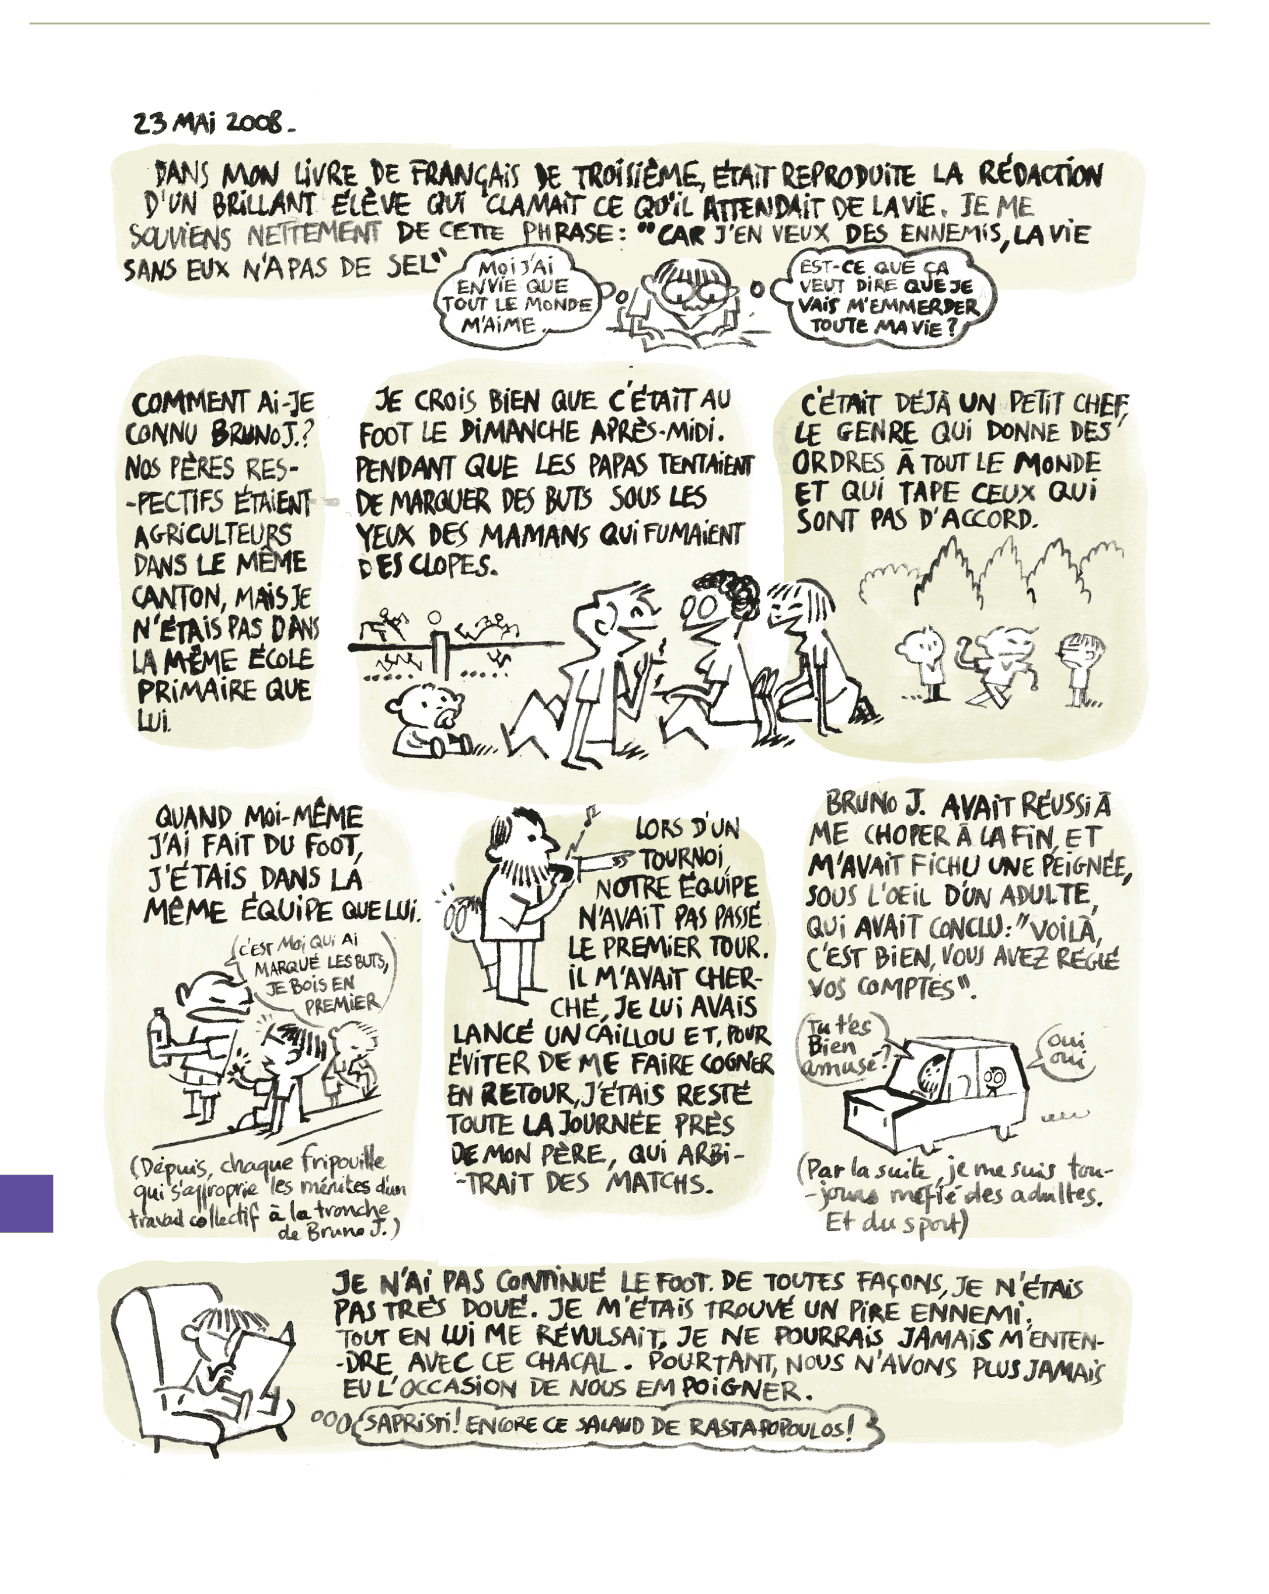 23 MAI 2008.
DANS MON LIVRE DE FRANÇAIS DE TROISIÈME, ÉTAIT REPRODUITE LA RÉDACTION
D'UN BRILLANT ÉLÈVE QUI CLAMAIT CE QU'IL ATTENDAIT DE LA VIE. JE ME
SOUVIENS NETTEMENT DE CETTE PHRASE : "CAR J'EN VEUX DES ENNEMIS, LA VIE
SANS EUX N'A PAS DE SEL"
MOI J'AI
ENVIE QUE
TOUT LE MONDE
M'AIME.
EST-CE QUE ÇA
VEUT DIRE QUE JE
VAIS M'EMMERDER
TOUTE MA VIE ?
COMMENT AI-JE
CONNU BRUNO J.?
NOS PÈRES RES-
-PECTIFS ÉTAIENT
AGRICULTEURS
DANS LE MÊME
CANTON, MAIS JE
N'ÉTAIS PAS DANS
LA MÊME ÉCOLE
PRIMAIRE QUE
LUI.
JE CROIS BIEN QUE C'ÉTAIT AU
FOOT LE DIMANCHE APRÈS-MIDI.
PENDANT QUE LES PAPAS TENTAIENT
DE MARQUER DES BUTS SOUS LES
YEUX DES MAMANS QUI FUMAIENT
DES CLOPES.
C'ÉTAIT DÉJÀ UN PETIT CHEF,
LE GENRE QUI DONNE DES
ORDRES À TOUT LE MONDE
ET QUI TAPE CEUX QUI
SONT PAS D'ACCORD.
QUAND MOI-MÊME
J'AI FAIT DU FOOT,
J'ÉTAIS DANS LA
MÊME ÉQUIPE QUE LUI.
C'EST MOI QUI AI
MARQUÉ LES BUTS,
JE BOIS EN
PREMIER
(Depuis, chaque fripouille
qui s'approprie les mérites d'un
travail collectif à la tronche
de Bruno J.)
LORS D'UN
TOURNOI,
NOTRE ÉQUIPE
N'AVAIT PAS PASSÉ
LE PREMIER TOUR.
IL M'AVAIT CHER-
CHÉ, JE LUI AVAIS
LANCÉ UN CAILLOU ET, POUR
ÉVITER DE ME FAIRE COGNER
EN RETOUR, J'ÉTAIS RESTÉ
TOUTE LA JOURNÉE PRÈS
DE MON PÈRE, QUI ARBI-
-TRAIT DES MATCHS.
BRUNO J. AVAIT RÉUSSI À
ME CHOPER À LA FIN, ET
M'AVAIT FICHU UNE PEIGNÉE,
SOUS L'OEIL D'UN ADULTE,
QUI AVAIT CONCLU : "VOILÀ,
C'EST BIEN, VOUS AVEZ RÉGLÉ
VOS COMPTES".
Tu t'es
Bien
amusé ?
oui
oui
(Par la suite, je me suis tou-
-jours méfié des adultes.
Et du sport)
JE N'AI PAS CONTINUÉ LE FOOT. DE TOUTES FAÇONS, JE N'ÉTAIS
PAS TRÈS DOUÉ. JE M'ÉTAIS TROUVÉ UN PIRE ENNEMI.
TOUT EN LUI ME RÉVULSAIT, JE NE POURRAIS JAMAIS M'ENTEN-
-DRE AVEC CE CHACAL. POURTANT, NOUS N'AVONS PLUS JAMAIS
EU L'OCCASION DE NOUS EMPOIGNER.
SAPRISTI ! ENCORE CE SALAUD DE RASTAPOPOULOS !